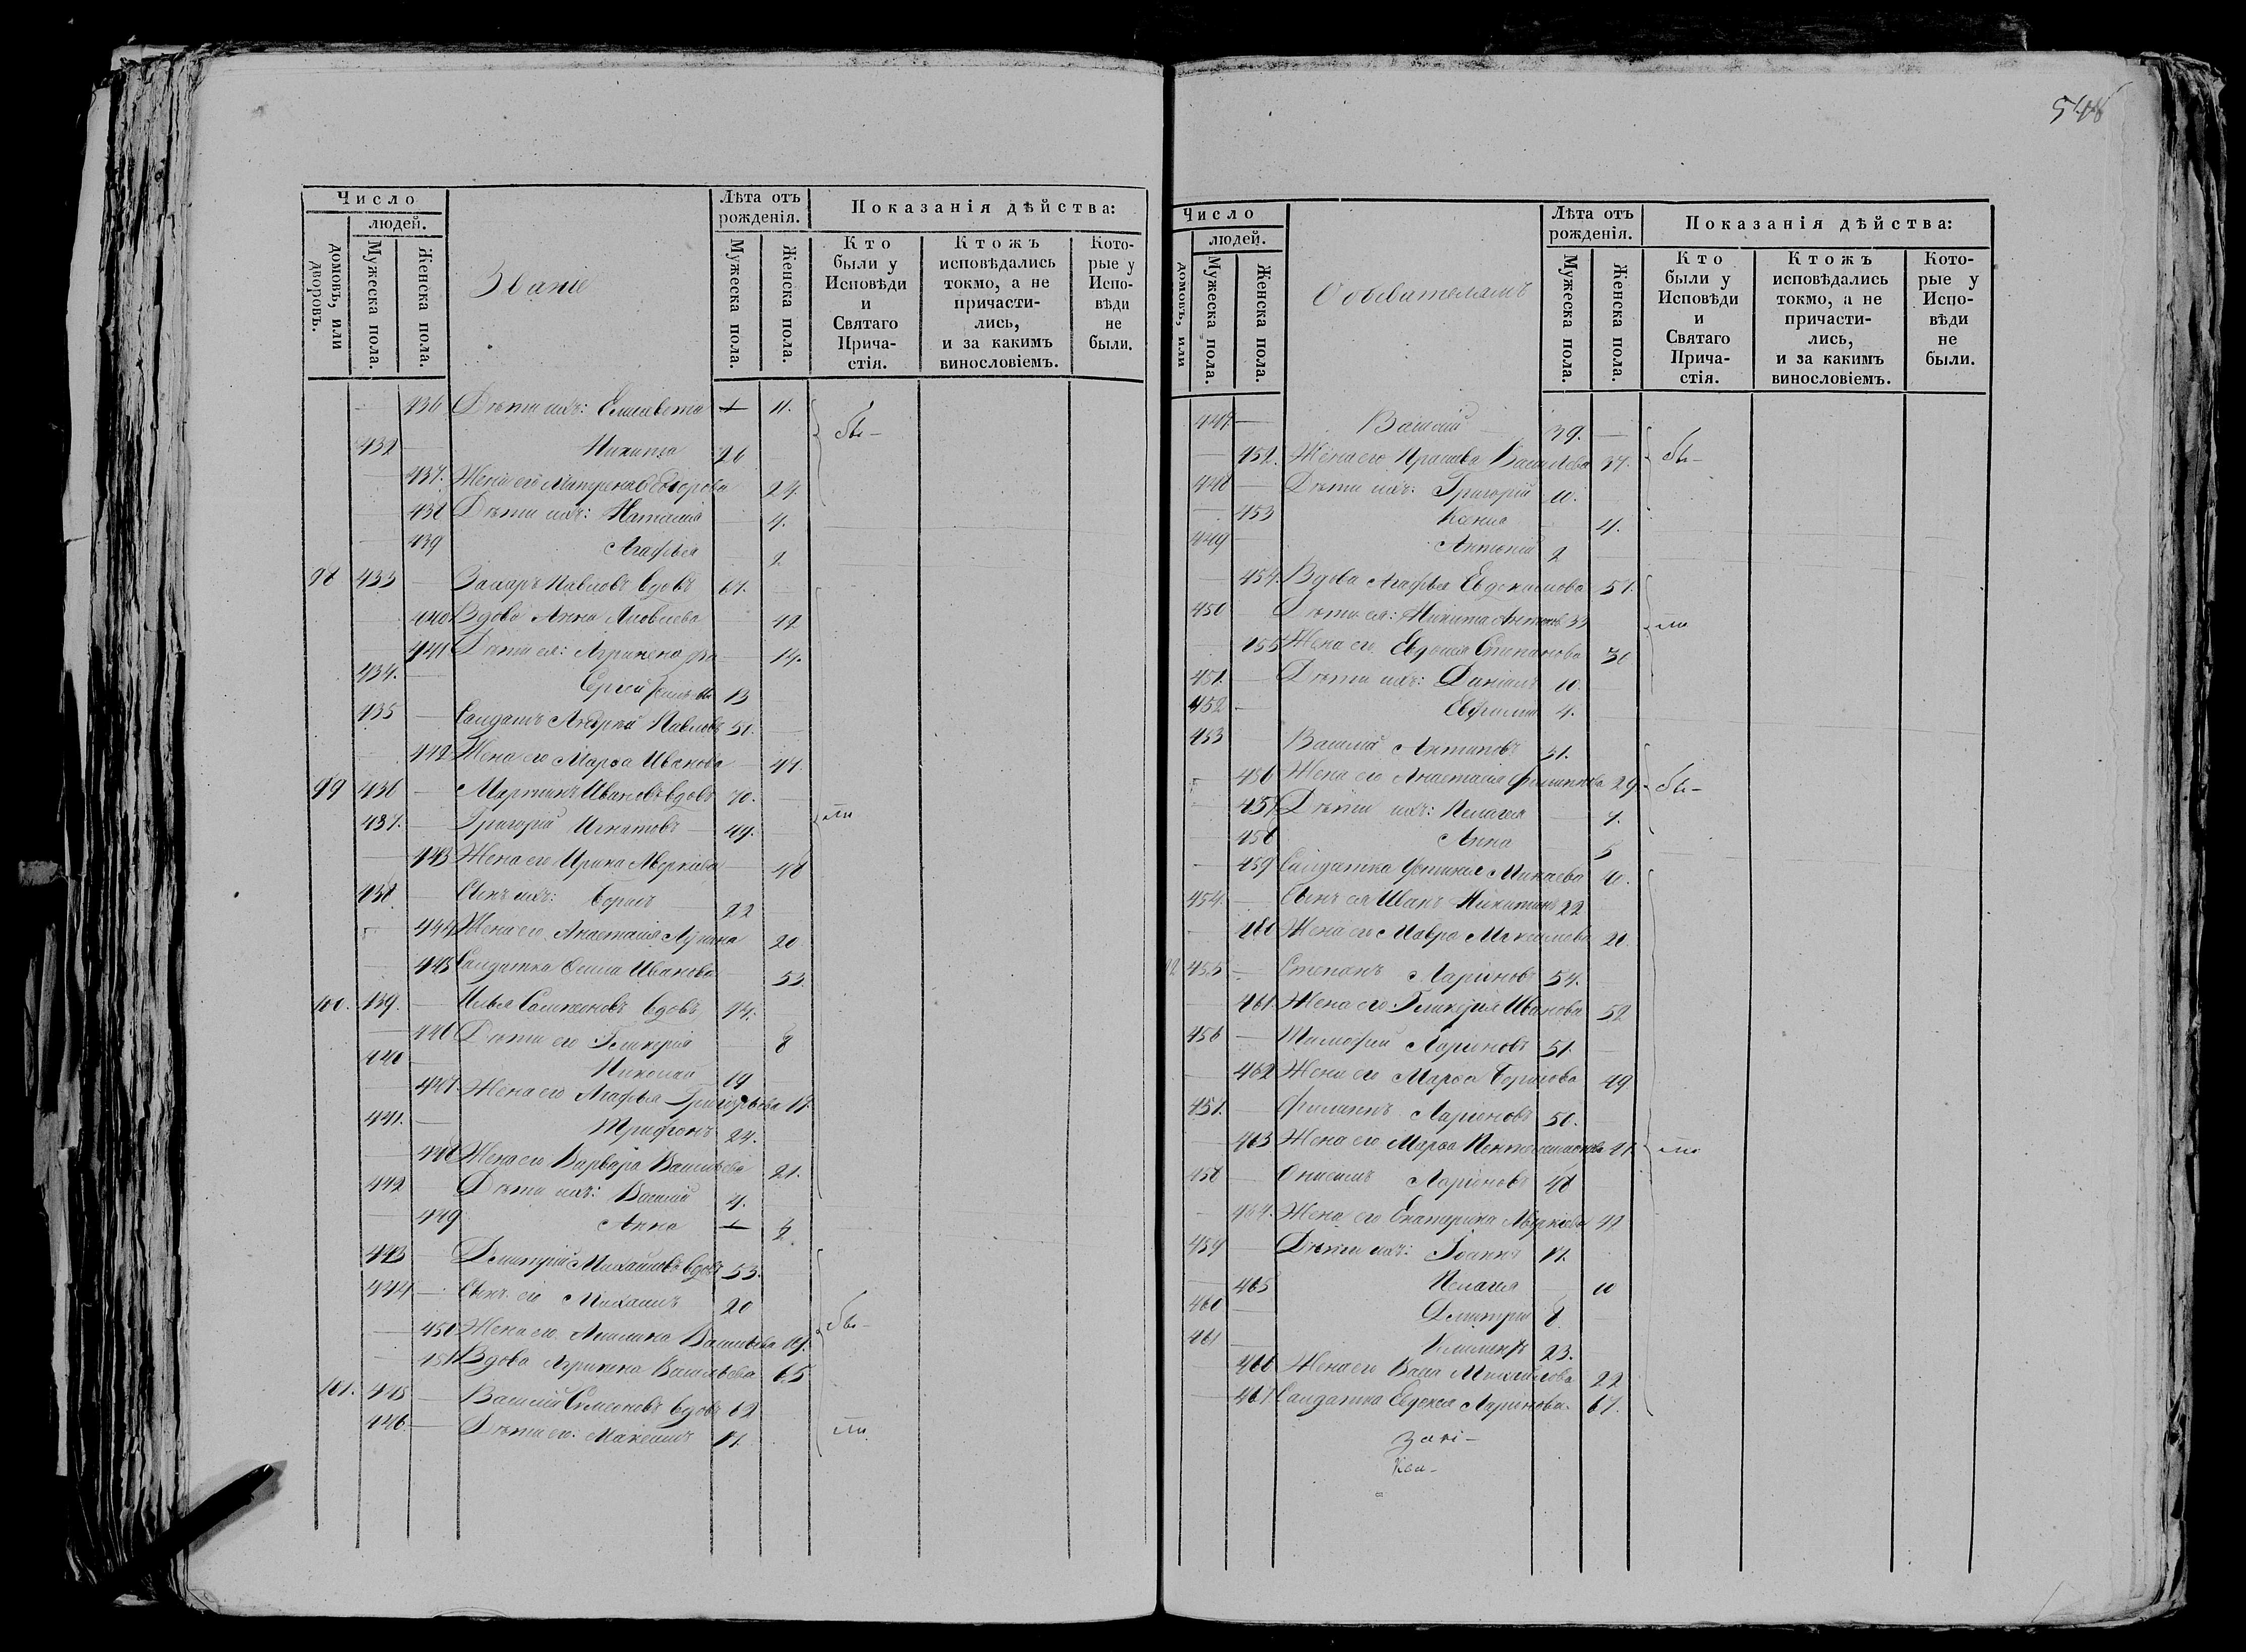 548
Число
людей.
домовъ, или дворовъ.
Мужеска пола.
Женска пола.
Званіе
Лѣта отъ рожденія.
Мужеска пола.
Женска пола.
Показанія дѣйства:
Кто были у Исповѣди и Святаго Прича-стія.
Ктожъ исповѣдались токмо, а не причасти-лись, и за какимъ винословіемъ.
Кото-рые у Испо-вѣди не были.
436 Дѣти ихъ: Елисавета 11.
бы-
432 Никита 26
437. Жена его Матрена Ѳедорова 24.
438 Дѣти ихъ: Наталія 4.
439 Агафья 2
98 433 Захаръ Павловъ вдовъ 67.
440 Вдова Анна Яковлева 42
441 Дѣти ея: Агрипена 14.
434. Сергей 13
435 Салдатъ Андрей Павловъ 51.
442 Жена его Марѳа Иванова 47.
99 436 Мартинъ Ивановъ вдовъ 70.
ли
437. Григорій Игнатовъ 49.
443 Жена его Ирина Меркіева 48
438. Сынъ ихъ: Борисъ 22
444 Жена его Анастасія Лукина 20
445 Салдатка Ѳекла Иванова 53
100. 439. Илья Самсоновъ вдовъ 44.
446 Дѣти его Гликерія 8
440 Николай 19
447. Жена его Агафья Григорьева 17.
441. Трифонъ 24.
448 Жена его Варвара Васильева 21.
442 Дѣти ихъ: Василій 4.
449 Анна 2.
443 Дмитрій Михайловъ вдовъ 53.
444 Сынъ его Михаилъ 20
бы-
450 Жена его Акилина Васильева 19.
451 Вдова Агрипена Васильева 65
101. 445 Василій Симеоновъ вдовъ 62
446. Дѣти его: Максимъ 17.
ли
Число
людей.
домовъ, или
Мужеска пола.
Женска пола.
Обывателямъ
Лѣта отъ рожденія.
Мужеска пола.
Женска пола.
Показанія дѣйства:
Кто были у Исповѣди и Святаго Прича-стія.
Ктожъ исповѣдались токмо, а не причасти-лись, и за какимъ винословіемъ.
Кото-рые у Испо-вѣди не были.
447. Василій 39.
452. Жена его Прасковья Васильева 37.
бы-
448 Дѣти ихъ: Григорій 10.
453 Ксенія 4.
449 Антоній 2
454. Вдова Агафья Евдокимова 57.
450 Дѣти ея: Никита Антиповъ 33
ли
455 Жена его Евдокія Степанова 30
451. Дѣти ихъ: Даніилъ 10.
452 Евфимій 4.
453 Василій Антиповъ 31.
456 Жена его Анастасія Филипова 29.
бы-
457 Дѣти ихъ: Пелагея 7.
458 Анна 5
459 Салдатка Устинья Минаева 40.
454. Сынъ ея Иванъ Никитинъ 22
460 Жена его Мавра Максимова 20.
455 Степанъ Ларіоновъ 54.
461. Жена его Гликерія Иванова 52
456 Тимофей Ларіоновъ 51.
462 Жена его Марѳа Борисова 49
457. Филиппъ Ларіоновъ 50.
463 Жена его Марѳа Пентелимонова 47.
ли
458 Онисимъ Ларіоновъ 48
464. Жена его Екатерина Меркіева 42
459 Дѣти ихъ: Іоаннъ 17.
465 Пелагея 10
460 Дмитрій 8.
461 Климентъ 23.
466 Жена его Васса Михайлова 22
467 Салдатка Евдокія Ларіонова 67.